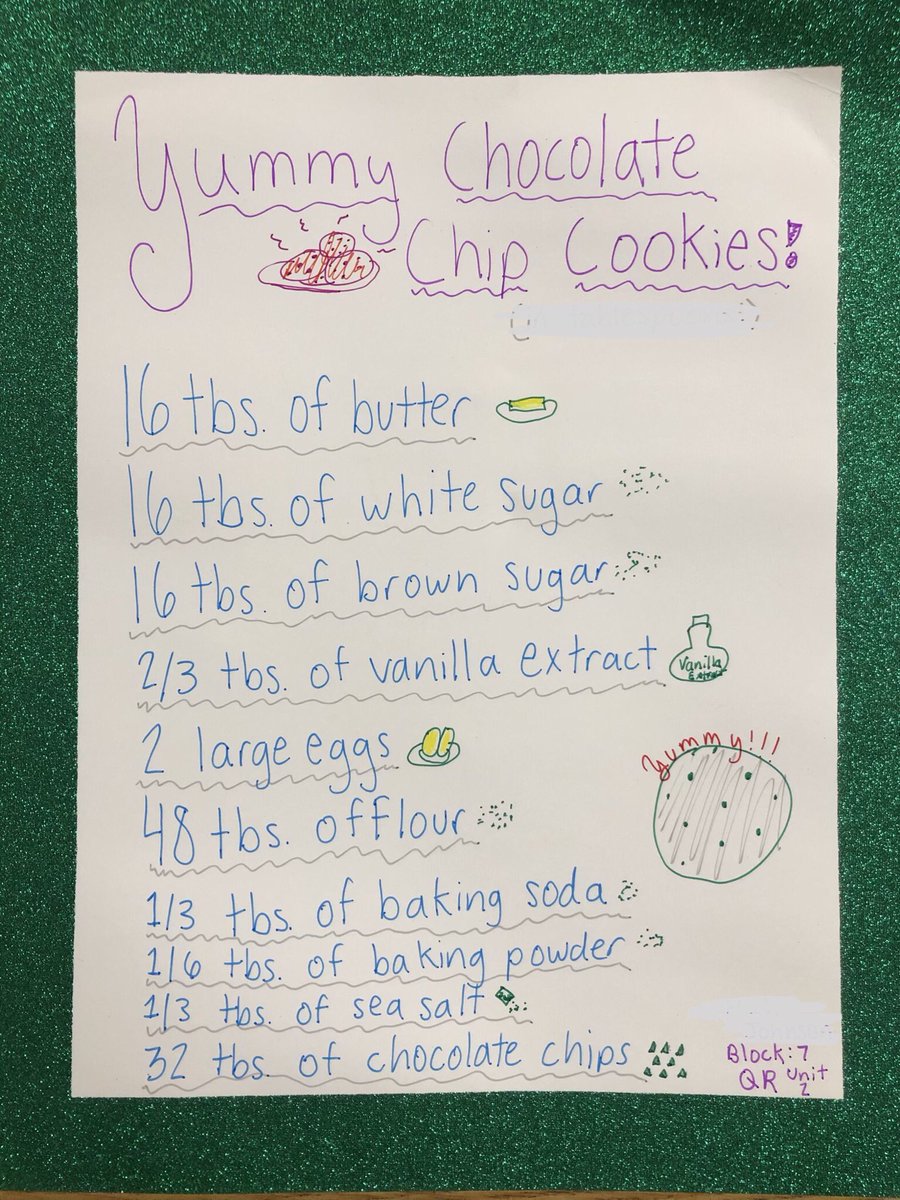 Yummy Chocolate
Chip Cookies!
16 tbs. of butter
16 tbs. of white sugar
16 tbs. of brown sugar
2/3 tbs. of vanilla extract
Vanilla
Extract
2 large eggs
Yummy!!!
48 tbs. of flour
1/3 tbs. of baking soda
1/6 tbs. of baking powder
1/3 tbs. of sea salt
32 tbs. of chocolate chips
Block: 7
QR Unit
2